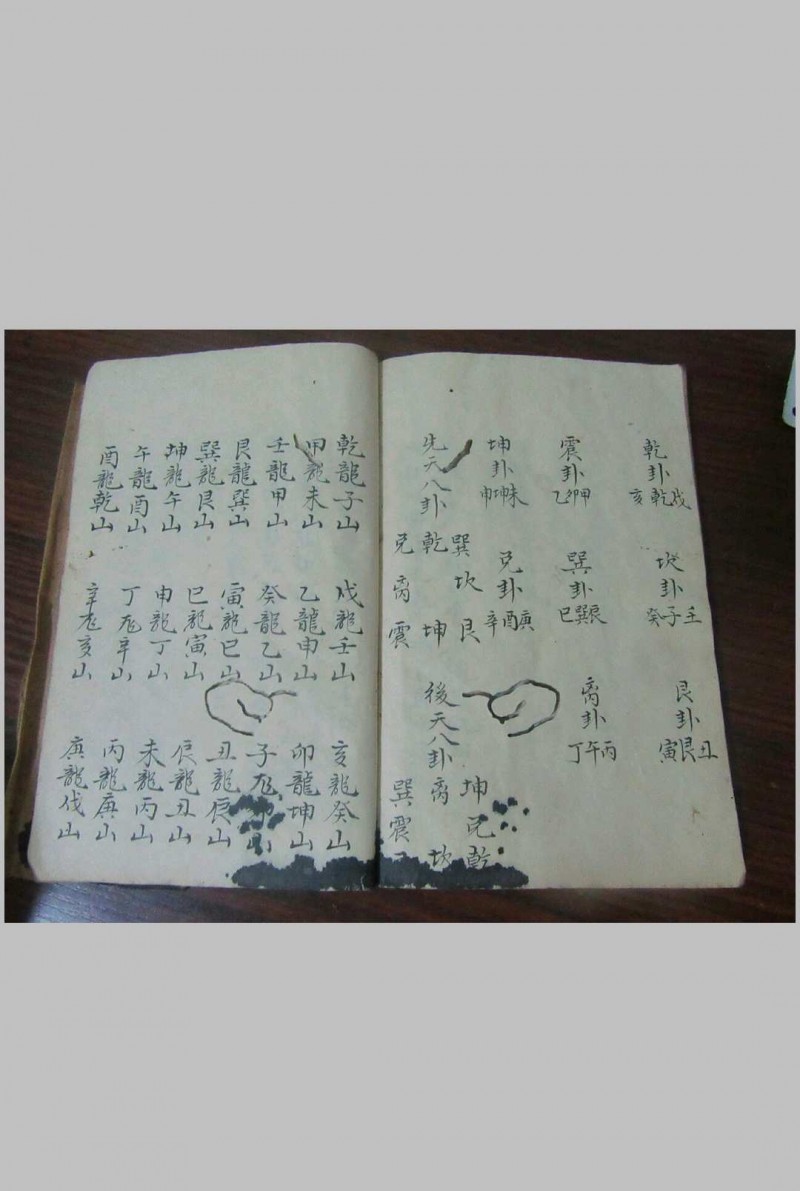 乾卦
戌乾亥
坎卦
壬子癸
艮卦
丑艮寅
震卦
甲卯乙
巽卦
辰巽巳
离卦
丙午丁
坤卦
未坤申
兑卦
庚酉辛
先天八卦
巽 坎 艮
乾 坤
兑 离 震
後天八卦
坤 兑 乾
离 坎
巽 震
乾龍子山
戌龍壬山
亥龍癸山
甲龍未山
乙龍申山
卯龍坤山
壬龍甲山
癸龍乙山
子龙
山
艮龍巽山
寅龍巳山
丑龍辰山
巽龍艮山
巳龍寅山
辰龍丑山
坤龍午山
申龍丁山
未龍丙山
午龍酉山
丁龙辛山
丙龍庚山
酉龍乾山
辛龙亥山
庚龍伐山